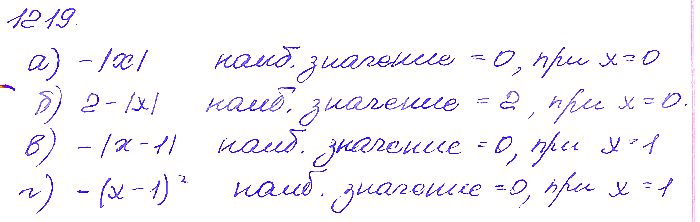 1219.
а) -|x| наиб. значение = 0, при x=0
б) 2-|x| наиб. значение = 2, при x=0.
в) -|x-1| наиб. значение = 0, при x=1
г) -(x-1)² наиб. значение = 0, при x=1